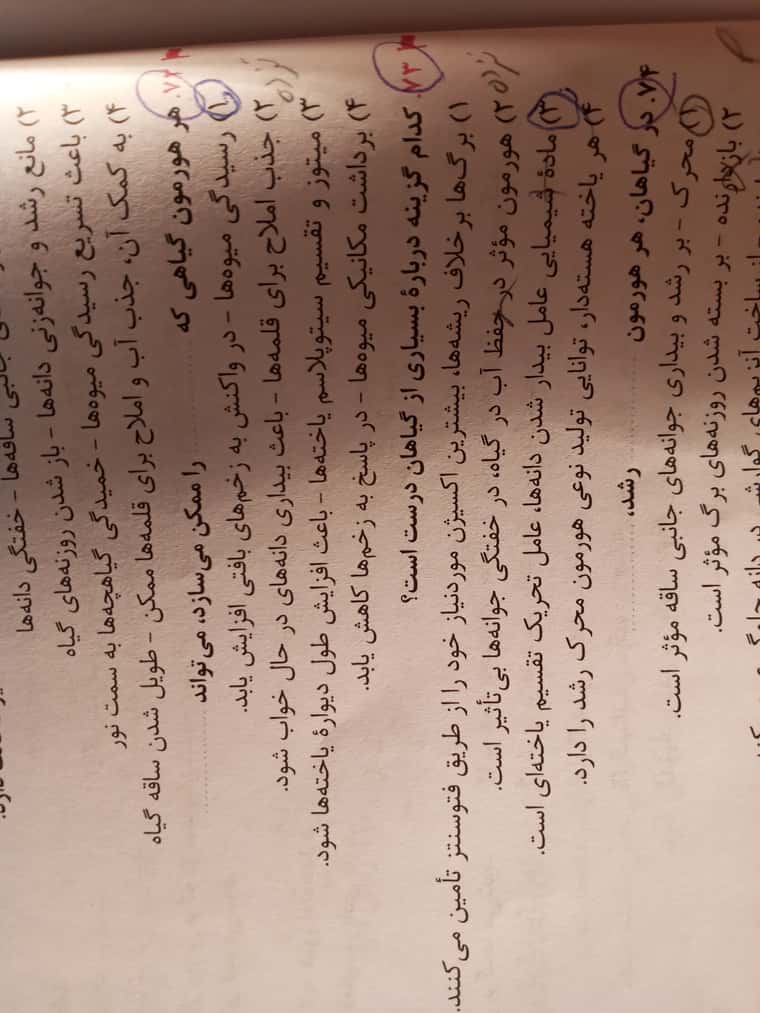 جانبی ساقه‌ها - خفتگی دانه‌ها
۲) مانع رشد و جوانه‌زنی دانه‌ها - باز شدن روزنه‌های گیاه
۳) باعث تسریع رسیدگی میوه‌ها - خمیدگی گیاهچه‌ها به سمت نور
۴) به کمک آن، جذب آب و املاح برای قلمه‌ها ممکن - طویل شدن ساقه گیاه
۷۲. هر هورمون گیاهی که .......... را ممکن می‌سازد، می‌تواند ..........
۱) رسیدگی میوه‌ها - در واکنش به زخم‌های بافتی افزایش یابد.
۲) جذب املاح برای قلمه‌ها - باعث بیداری دانه‌های در حال خواب شود.
۳) میتوز و تقسیم سیتوپلاسم یاخته‌ها - باعث افزایش طول دیوارهٔ یاخته‌ها شود.
۴) برداشت مکانیکی میوه‌ها - در پاسخ به زخم‌ها کاهش یابد.
۷۳. کدام گزینه دربارهٔ بسیاری از گیاهان درست است؟
۱) برگ‌ها برخلاف ریشه‌ها، بیشترین اکسیژن موردنیاز خود را از طریق فتوسنتز تأمین می‌کنند.
۲) هورمون مؤثر در حفظ آب در گیاه، در خفتگی جوانه‌ها بی‌تأثیر است.
۳) مادهٔ شیمیایی عامل بیدار شدن دانه‌ها، عامل تحریک تقسیم یاخته‌ای است.
۴) هر یاخته هسته‌دار، توانایی تولید نوعی هورمون محرک رشد را دارد.
۷۴. در گیاهان، هر هورمون .......... رشد، ..........
۱) محرک - بر رشد و بیداری جوانه‌های جانبی ساقه مؤثر است.
۲) بازدارنده - بر بسته شدن روزنه‌های برگ مؤثر است.